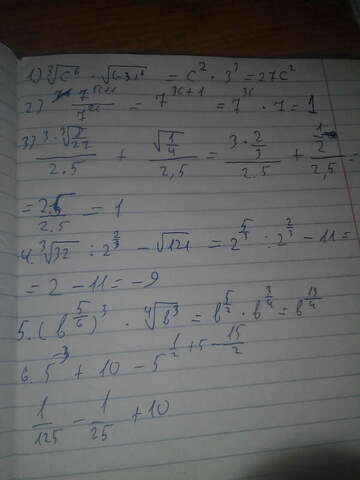 1) ∛c⁶ · √(-3)⁶ = c² · 3³ = 27c²
2) 7^(x+1) / 7^(2x) = 7^(x+1) = 7^x · 7 = 1
3) (3·∛(8/27))/2.5 + √(1/4)/2,5 = (3·2/3)/2.5 + (1/2)/2,5 =
= 2.5/2.5 = 1
4. ∛32 : 2^(2/3) - √121 = 2^(5/3) : 2^(2/3) - 11 =
= 2 - 11 = -9
5. (b^(5/6))³ · ⁴√b³ = b^(5/2) · b^(3/4) = b^(13/4)
6. 5^(-3) + 10 - 5^(1/2+5-15/2)
1/125 - 1/25 + 10